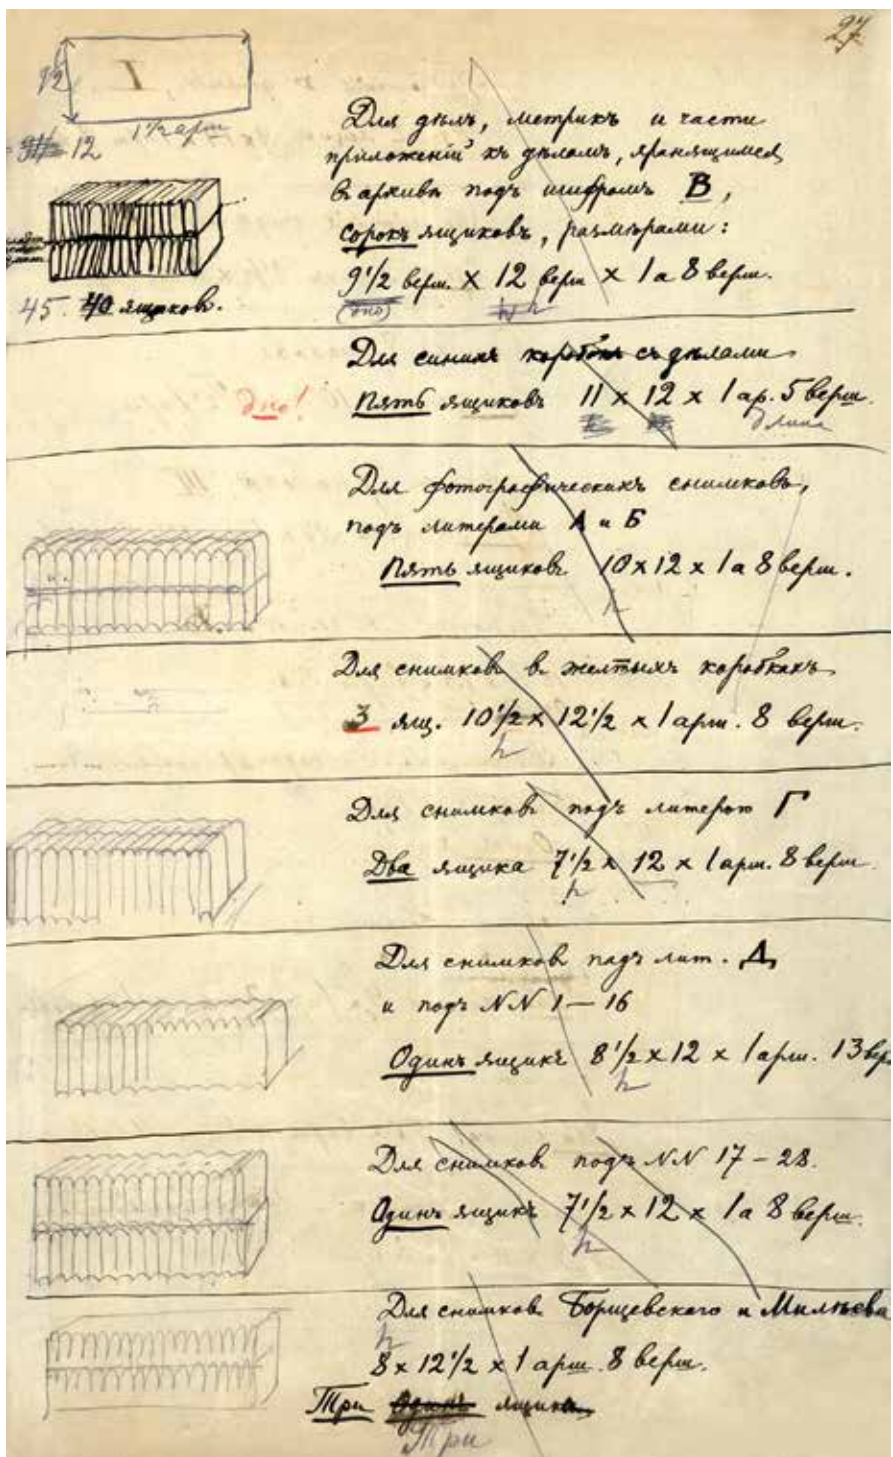 27
I
12
1 1/2 арш
12
Для дѣлъ, метрикъ и части
приложенiй къ дѣламъ, хранящимся
въ архивѣ подъ шифромъ В,
сорокъ ящиковъ, размѣрами:
9 1/2 верш. × 12 верш × 1 а 8 верш.
(дно) h
45. 40 ящиков.
Для синихъ коробокъ съ дѣлами
дно! Пять ящиковъ 11 × 12 × 1 ар. 5 верш.
длина
Для фотографическихъ снимковъ,
подъ литерами А и Б
Пять ящиковъ 10 × 12 × 1 а 8 верш.
h
Для снимковъ въ желтыхъ коробкахъ
3 ящ. 10 1/2 × 12 1/2 × 1 арш. 8 верш.
h
Для снимковъ подъ литерою Г
Два ящика 7 1/2 × 12 × 1 арш. 8 верш.
h
Для снимковъ подъ лит. Д
и подъ NN 1 — 16
Одинъ ящикъ 8 1/2 × 12 × 1 арш. 13 вер
h
Для снимковъ подъ NN 17 – 28.
Одинъ ящикъ 7 1/2 × 12 × 1 а 8 верш.
h
Для снимковъ Борщевскаго и Милѣева
h
8 × 12 1/2 × 1 арш. 8 верш.
Три Одинъ ящика
Три